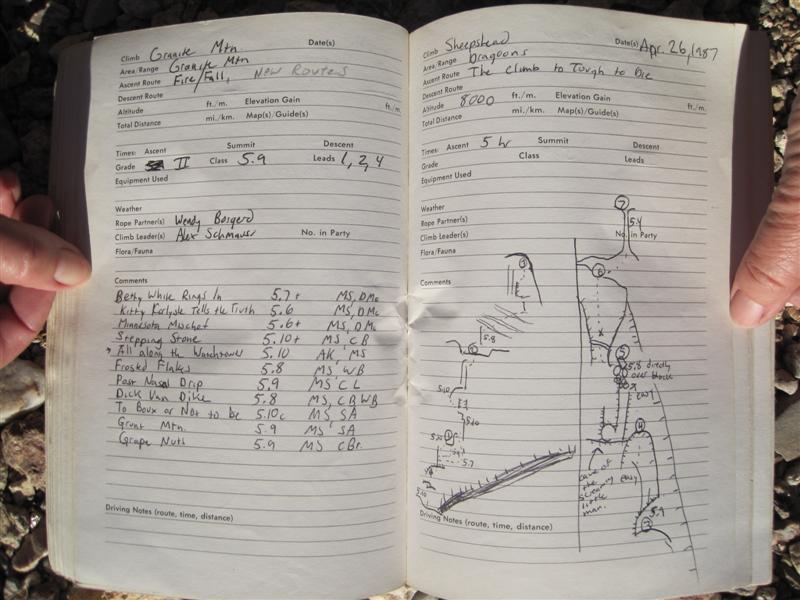 Climb Granite Mtn Date(s)
Area/Range Granite Mtn
Ascent Route Fire/Fall, New Routes
Descent Route
Altitude ft./m. Elevation Gain ft./m.
Total Distance mi./km. Map(s)/Guide(s)
Times: Ascent Summit Descent
Grade II Class 5.9 Leads 1, 2, 4
Equipment Used
Weather
Rope Partner(s) Wendy
Climb Leader(s) Alex No. in Party
Flora/Fauna
Comments
Betty White Rings In 5.7+ MS, DMc
Kitty Tells the Truth 5.6 MS, DMc
Minnesota 5.6+ MS, DMc
Stepping Stone 5.10+ MS, CB
All along the Watchtower 5.10 AK, MS
Frosted Flakes 5.8 MS WB
Post Nasal Drip 5.9 MS CL
Dick Van Dike 5.8 MS, CB WB
To Boux or Not to be 5.10c MS SA
Grunt Mtn. 5.9 MS SA
Grape Nuth 5.9 MS CBr.
Driving Notes (route, time, distance)
Climb Sheepshead Date(s) Apr. 26, 1987
Area/Range Dragoons
Ascent Route The Climb to Tough to Die
Descent Route
Altitude 8000 ft./m. Elevation Gain ft./m.
Total Distance mi./km. Map(s)/Guide(s)
Times: Ascent 5 hr Summit Descent
Grade Class Leads
Equipment Used
Weather
7
5.4
Rope Partner(s)
Climb Leader(s) No. in Party
Flora/Fauna
3
6
Comments
5.8
5
5.8 directly
over block
5.10
easy
5.10
4
5.7
cave of
the
screaming
little
man.
easy
5.10
5.9
Driving Notes (route, time, distance)